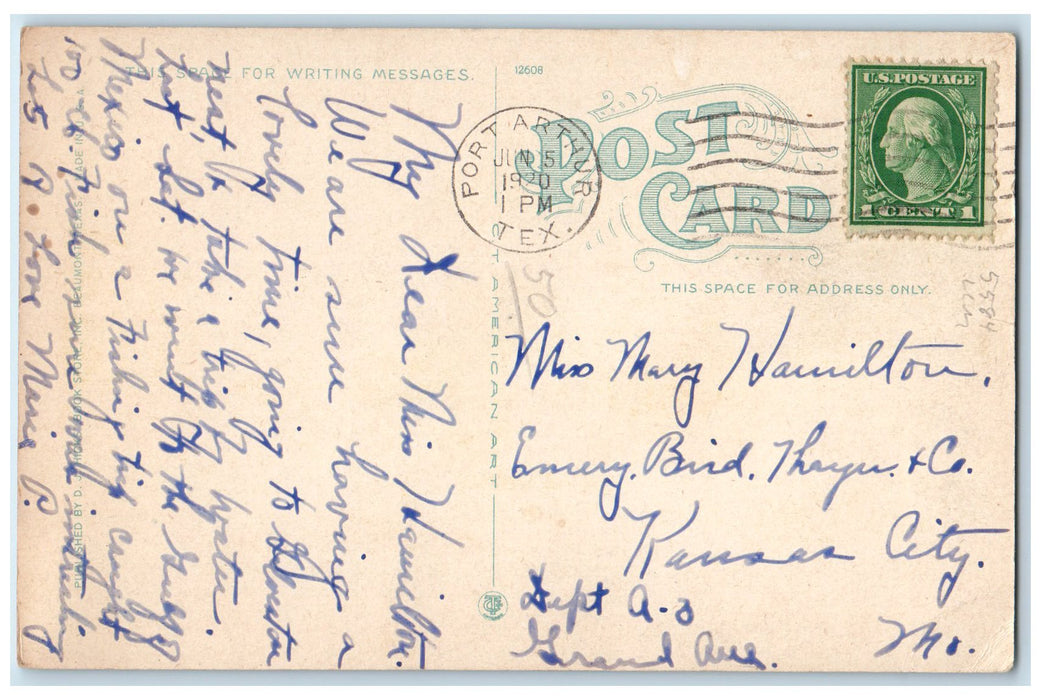 THIS SPACE FOR WRITING MESSAGES.
12608
POST CARD
THIS SPACE FOR ADDRESS ONLY.
PORT ARTHUR
JUN 5
1920
1 PM
TEX.
U.S. POSTAGE
1 CENT 1
My Dear Miss Hamilton.
We are sure having a
lovely time, going to
next, & take a trip by water.
Last Sat. we went to the Gulf of
Mexico on a fishing trip caught
100 lb. Fish
Lots of love Marie P.
Miss Mary Hamilton.
Emery, Bird, Thayer & Co.
Kansas City.
Dept A-3
Grand Ave.
Mo.
AMERICAN ART
PUBLISHED BY D. BOOK STORE, INC. BEAUMONT, TEXAS. MADE IN U.S.A.
50
5584